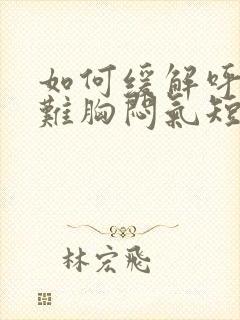 如何缓解呼
難胸悶氣短
林宏飛